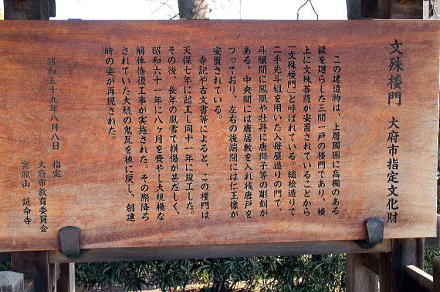 文殊楼門　大府市指定文化財
この建造物は、上層周囲に高欄のある
縁を廻らした三間一戸の楼門であり、楼
上に文殊菩薩が安置されていることから
「文殊楼門」と呼ばれている。総桧造りで
二手先斗組を用いた入母屋造りの門で、
斗組間に鳳凰や牡丹に唐獅子等の彫刻が
ある。中央間には唐居敷を入れ桟唐戸を
つっており、左右の後端間には仁王像が
安置されている。
寺記や古文書等によると、この楼門は
天保七年に起工し同十一年に竣工した。
その後、長年の風雪で損傷が甚だしく、
昭和六十一年に八ヶ月を費やし大規模な
解体修復工事が実施された。その際降ろ
されていた大棟の鬼瓦を核に戻し、創建
時の姿が再現された。
昭和五十九年八月八日　指定
大府市教育委員会
宝龍山　延命寺